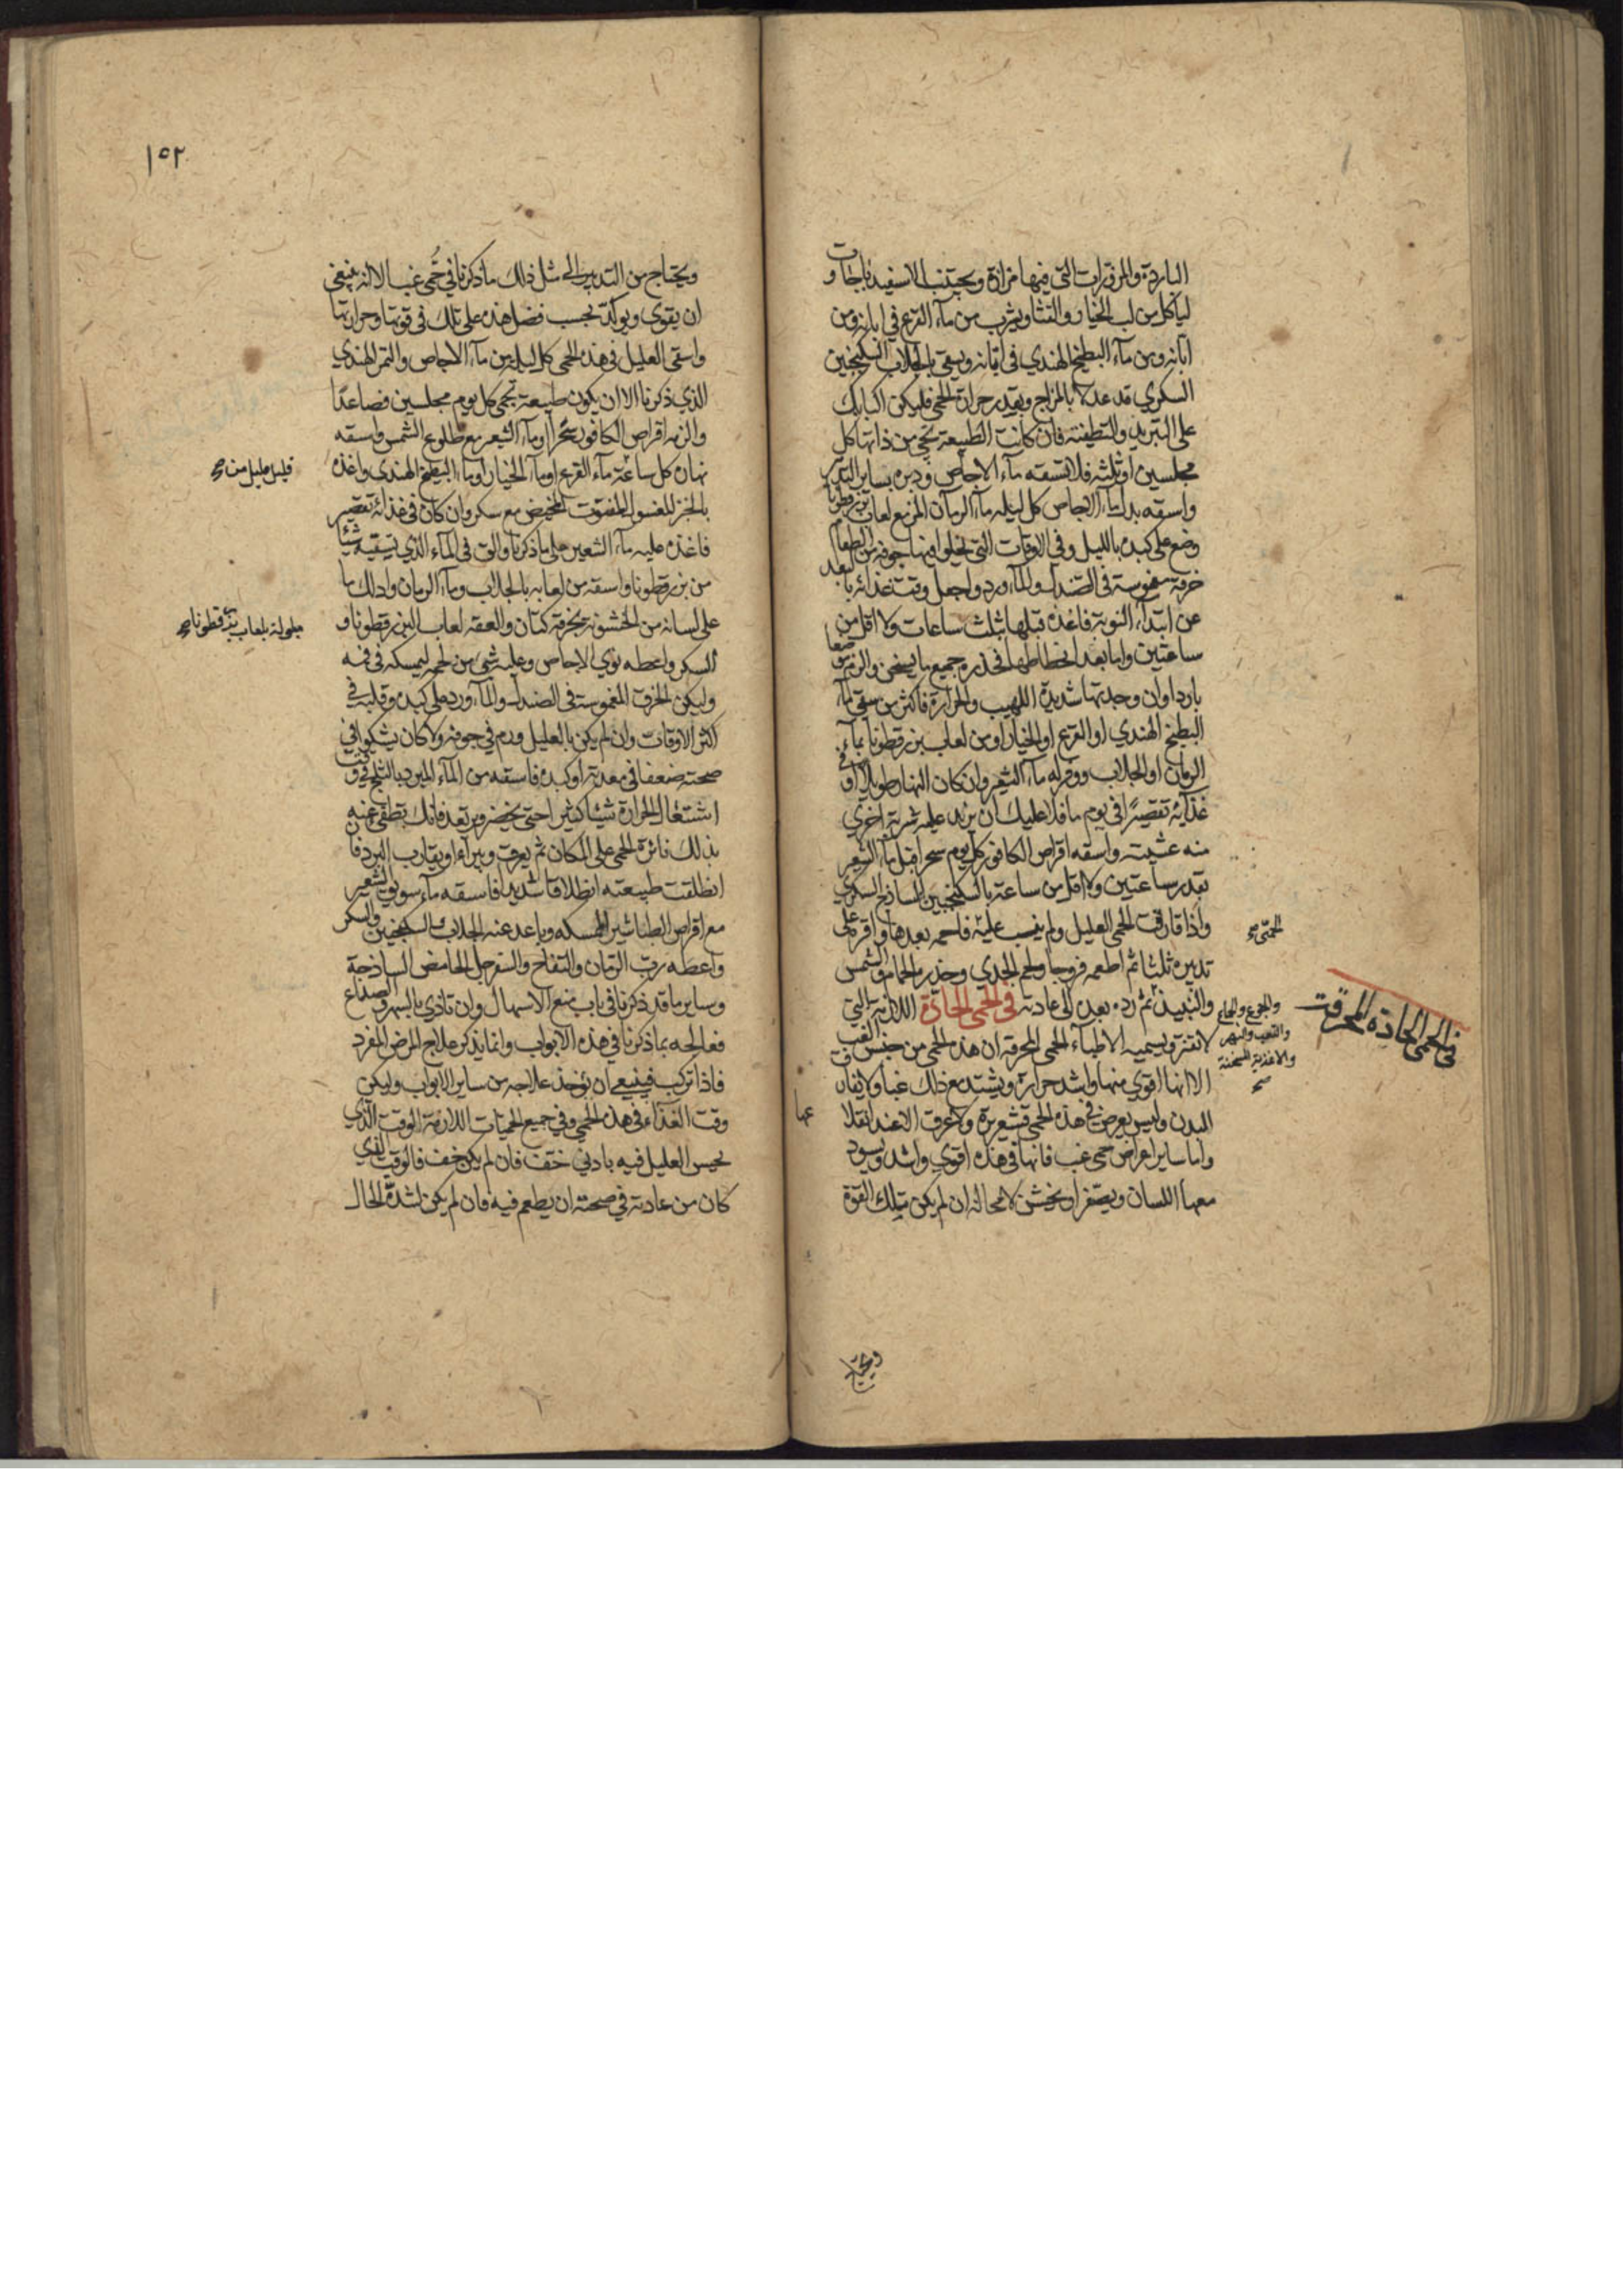 الباردة والمزورات التي فيها مزازة ويجتنب الاسفيدباجات و
لياكل من لب الخيار والقثا ويشرب من ماء القرع في ابانه ومن
ابانه ومن ماء البطيخ الهندي في ابانه ويسقى بالجلاب السكنجبين
السكري قد عدلا بالمزاج وبقدر حرارة الحمى فليكن اكبابك
على التبريد والتطفئة فان كانت الطبيعة تجي من ذاتها كل
مجلسين او ثلثة فلا تسقه ماء الاجاص ودبره بساير التدبير
واسقه بدل ماء الاجاص كل ليلة ماء الرمان المز مع لعاب بزرقطونا
وضع على كبده بالليل وفي الاوقات التي يخلوا فيها جوفه من الطعام
خرقة مغموسة في الصندل والماء ورد واجعل وقت غذائه بالبعد
عن ابتداء النوبة فاغذه قبلها بثلث ساعات ولا اقل من
ساعتين واما بعد انحطاطها فحذره جميع ما يسخن والزمه موضعا
باردا وان وجدتها شديدة اللهيب والحرارة فاكثر من سقي ماء
البطيخ الهندي او القرع او الخيار او من لعاب بزرقطونا بماء
الرمان او الجلاب ووفر له ماء الشعير وان كان النهار طويلا او في
غذائه تقصيرا في يوم ما فلا عليك ان يزيد عليه شربة اخري
منه عشية واسقه اقراص الكافور كل يوم سحرا قبل ماء الشعير
بقدر ساعتين ولا اقل من ساعة بالسكنجبين الساذج السكري
واذا فارقت الحمى العليل ولم يغب عليه فاحمه بعدها واقره على
الحمى صح
تدبيره ثلثا ثم اطعمه فروجا ولحم الجدي وحذره الحمام والشمس
والنبيذ ثم رده بعد الى عادته في الحمى الحادة اللازمة التي
والجوع والجماع
والتعب والسهر
والاغذية المسخنة
صح
في الحمى الحادة المحرقة
لا تفتر ويسميه الاطباء الحمى المحرقة ان هذه الحمى من جنس الغب
الا انها اقوي منها واشد حرارة ويشتد مع ذلك غبا ولا يفارق
البدن وليس يعرض في هذه الحمى قشعريرة ولا عرق الا عند انقلا
عها
واما ساير اعراض حمى غب فانها في هذه اقوي واشد ويسود
معها اللسان ويصفر او يخشن لا محالة ان لم يكن بتلك القوة
ويحتاج
١٥٢
ويحتاج من التدبير الى مثل ذلك ما ذكرنا في حمى غب الا انه ينبغي
ان يقوى ويوكد بحسب فضل هذه على تلك في قوتها وحرارتها
واسقى العليل في هذه الحمى كل ليلة من ماء الاجاص والتمر الهندي
الذي ذكرنا الا ان يكون طبيعته تجي كل يوم مجلسين فصاعدا
والزمه اقراص الكافور سحرا وماء الشعير مع طلوع الشمس واسقه
نهاره كل ساعة ماء القرع او ماء الخيار او ماء البطيخ الهندي واغذه
قليل قليل من صح
بالخبز المغسول المفتوت المخيض مع سكر وان كان في غذائه تقصير
فاغذه عليه ماء الشعير على ما ذكرنا والق في الماء الذي تسقيه شيئا
من بزرقطونا واسقه من لعابه بالجلاب وماء الرمان وادلك ما
على لسانه من الخشونة بخرقة كتان والعقه لعاب البزرقطونا و
مبلولة بلعاب بزرقطونا صح
السكر واعطه نوي الاجاص وعليه شيء من لحمه ليمسكه في فمه
وليكن الخرق المغموسة في الصندل والماء ورد على كبده وقلبه في
اكثر الاوقات وان لم يكن بالعليل ورم في جوفه ولا كان يشكوا في
صحته ضعفا في معدته او كبده فاسقه من الماء المبرد بالثلج في وقت
اشتعال الحرارة شيئا كثيرا حتى يخضر ويرتعد فانك تطفي عنه
بذلك نائرة الحمى على المكان ثم يعرق ويبرا او يقارب البرد فان
انطلقت طبيعته انطلاقا شديدا فاسقه ماء سويق الشعير
مع اقراص الطباشير الممسكه وباعد عنه الجلاب والسكنجبين والسكر
واعطه رب الرمان والتفاح والسفرجل الحامض الساذجة
وساير ما قد ذكرنا في باب منع الاسهال وان تاذي بالسهر والصداع
فعالجه بما ذكرنا في هذه الابواب وانما يذكر علاج المرض المفرد
فاذا تركب فينبغي ان يؤخذ علاجه من ساير الابواب وليكن
وقت الغذاء في هذه الحمى وفي جميع الحميات اللازمة الوقت الذي
يحس العليل فيه بادني خفة فان لم يكن خف فالوقت الذي
كان من عادته في صحته ان يطعم فيه فان لم يكن لشدة الحال